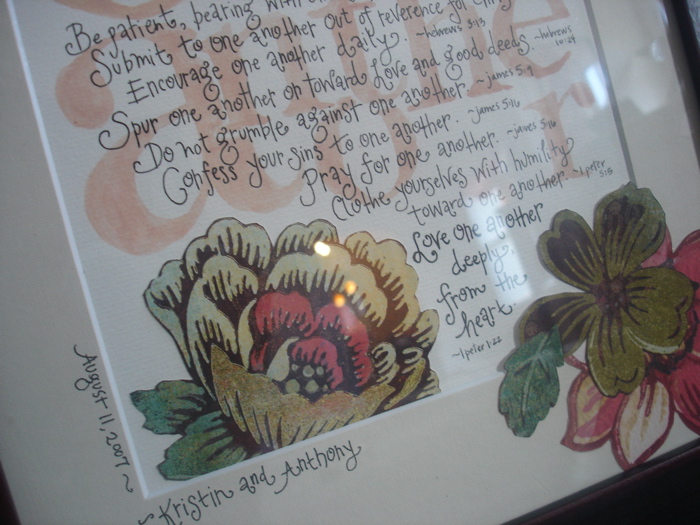 Be patient, bearing with
Submit to one another out of reverence for
Encourage one another daily. ~hebrews 3:13
Spur one another on toward love and good deeds. ~hebrews 10:24
Do not grumble against one another. ~james 5:9
Confess your sins to one another. ~james 5:16
Pray for one another. ~james 5:16
Clothe yourselves with humility
toward one another. ~1 peter 5:5
Love one another
deeply,
from the
heart.
~1 peter 1:22
August 11, 2007 ~
~Kristin and Anthony